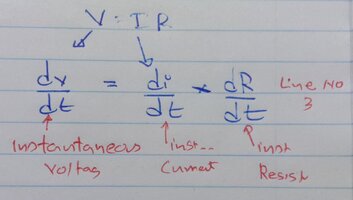 V = IR
dv/dt = di/dt × dR/dt Line No 3
Instantaneous inst... inst
Voltag Current Resist